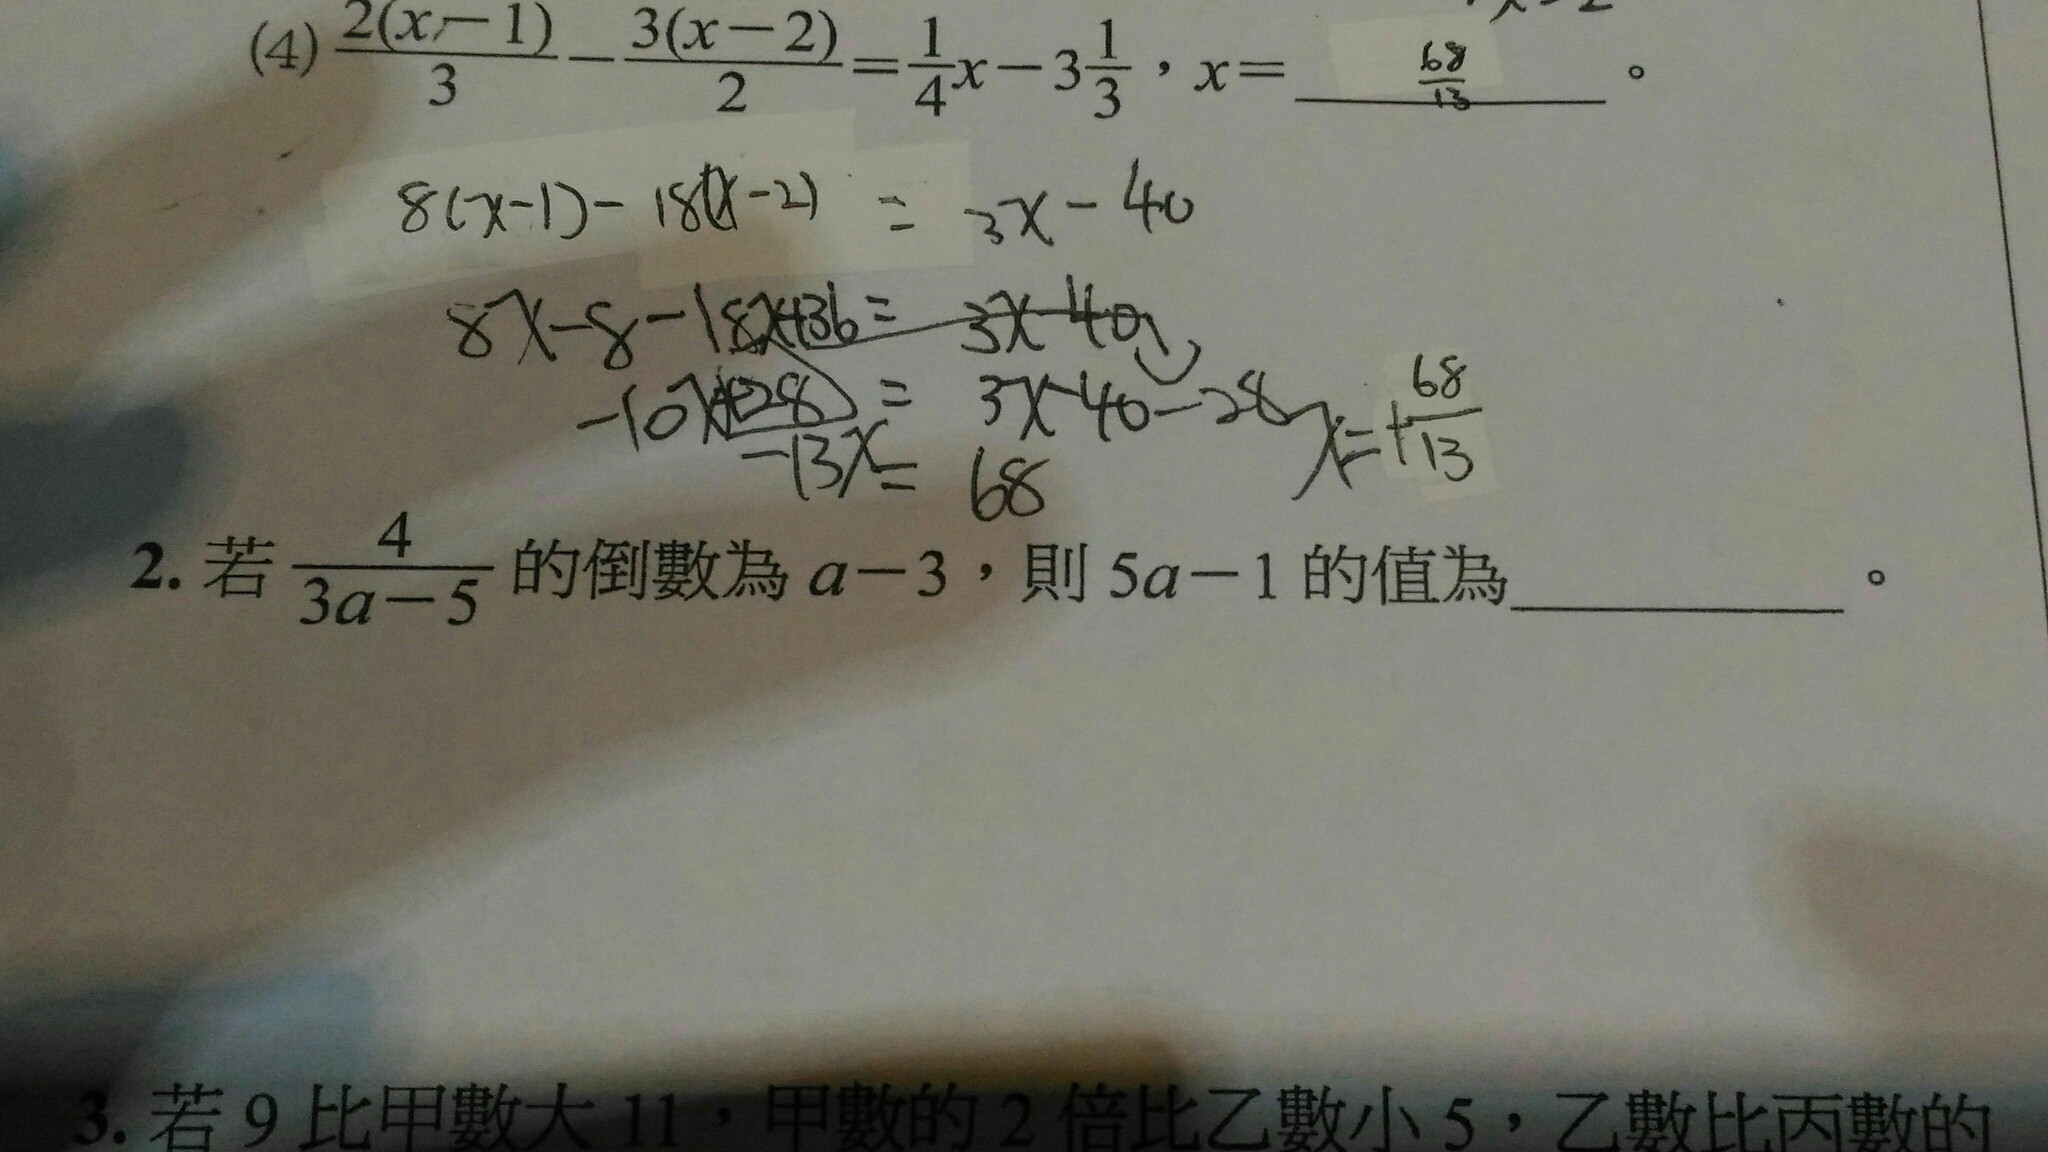 (4) 2(x-1)/3 - 3(x-2)/2 = 1/4 x - 3 1/3，x= 68/13 。
8(x-1) - 18(x-2) = 3x - 40
8x-8-18x+36 = 3x-40
-10x+28 = 3x-40-28
x=+68/13
-13x = 68
2. 若 4/3a-5 的倒數為 a-3，則 5a-1 的值為 。
3. 若 9 比甲數大 11，甲數的 2 倍比乙數小 5，乙數比丙數的